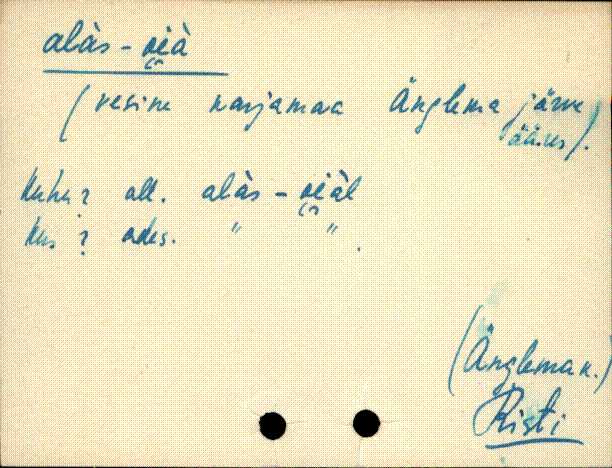 alàs-oià
(vesine karjamaa Änglema järve
ääres).
kuhu? all. alàs-oiàl
kus? ades. " " .
(Änglema k.)
Risti